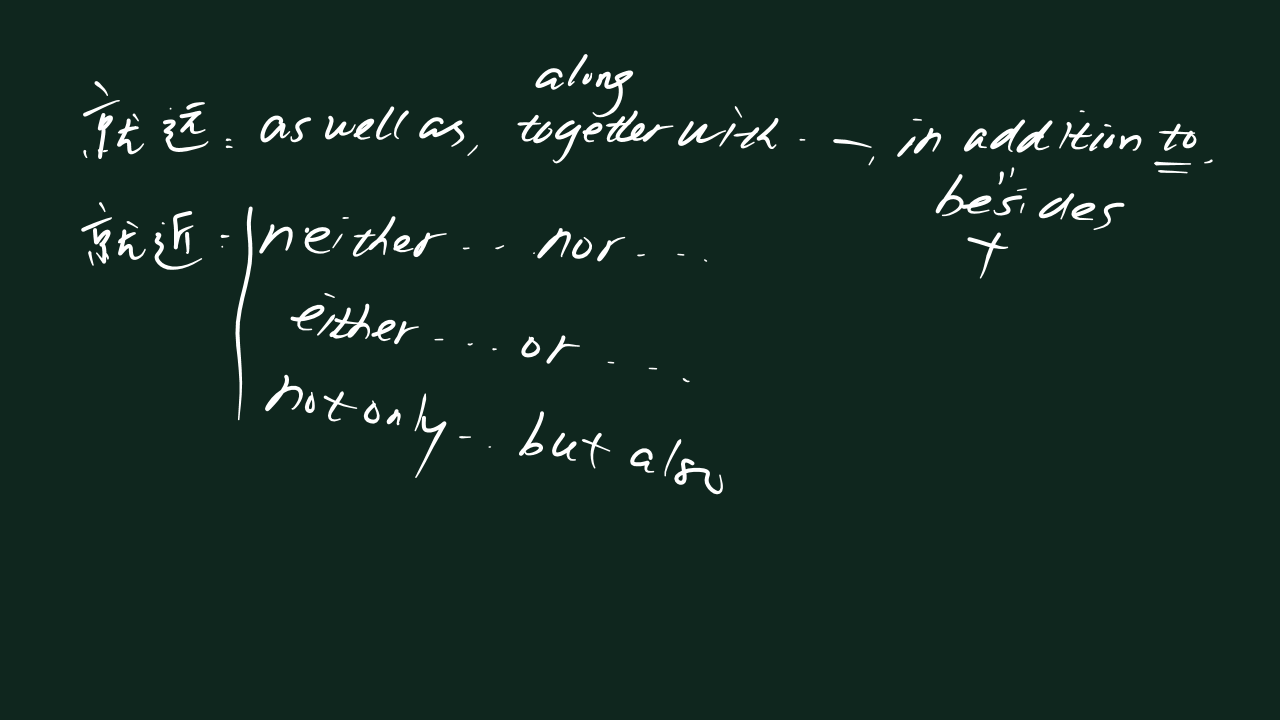 along
就远: as well as, together with ..., in addition to.
"
besides
+
就近: neither ... nor ...
either ... or ...
not only ... but also